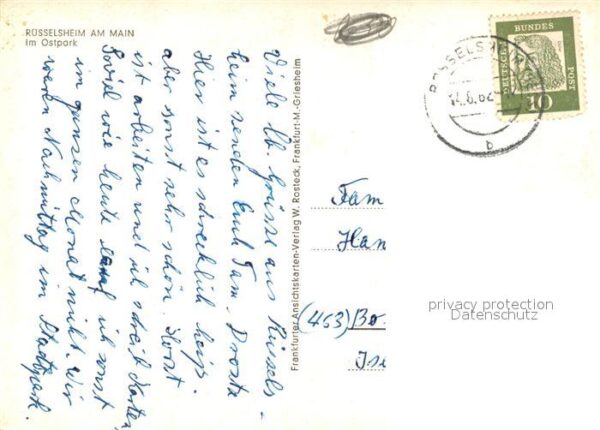 RÜSSELSHEIM AM MAIN
Im Ostpark
Viele lb. Grüsse aus Rüssels-
heim senden Euch Fam. Droste
Hier ist es schrecklich heiß.
aber sonst sehr schön. Horst
ist arbeiten und ich schreib Karten
Soviel wie heute lauf ich sonst
im ganzen Monat nicht. Wir
waren Nachmittag im Stadtpark.
Frankfurter Ansichtskarten-Verlag W. Rosteck, Frankfurt-M.-Griesheim
DEUTSCHE BUNDESPOST
10
RÜSSELSHEIM
14.6.62
b
Fam
Han
(463) Bo
Ise
privacy protection
Datenschutz